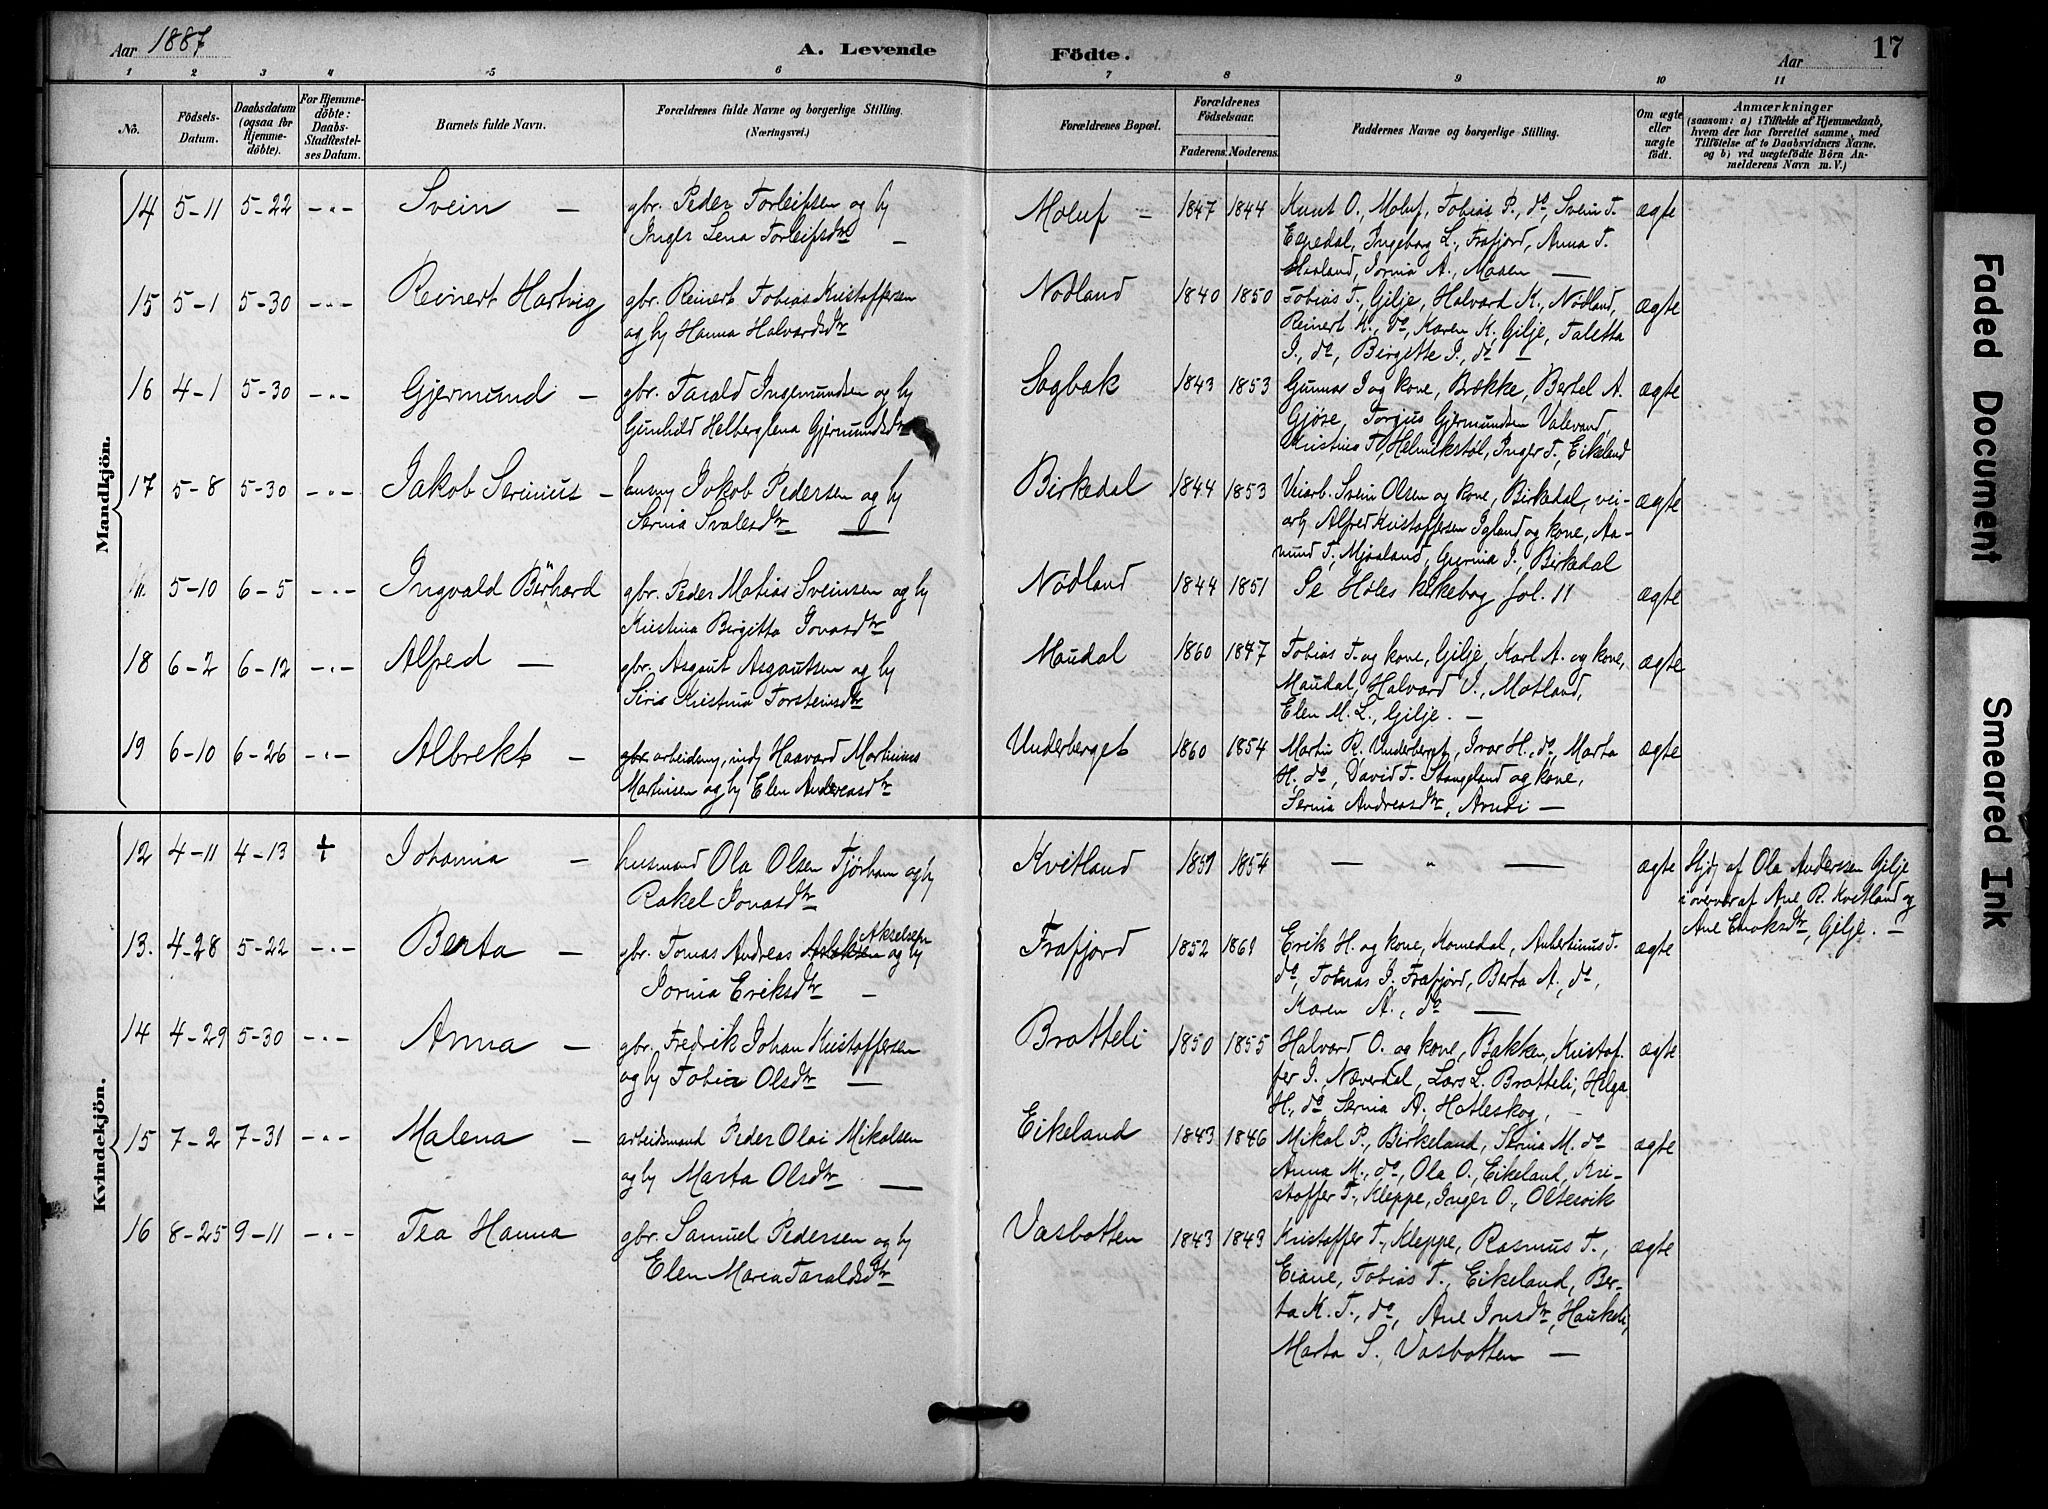 Aar 1887
A. Levende
Födte.
Aar
17
1 2 3 4 5 6 7 8 9 10 11
No.
Födsels-
Datum.
Daabsdatum
(ogsaa for
Hjemme-
döbte).
For Hjemme-
döbte:
Daabs-
Stadfæstel-
ses Datum.
Barnets fulde Navn.
Forældrenes fulde Navne og borgerlige Stilling.
(Næringsvei.)
Forældrenes Bopæl.
Forældrenes
Födselsaar.
Faderens. Moderens.
Faddernes Navne og borgerlige Stilling.
Om ægte
eller
uægte
födt.
Anmærkninger
(saasom: a) i Tilfælde af Hjemmedaab,
hvem der har forrettet samme, med
Tilföielse af to Daabsvidners Navne.
og b) ved uægtefödte Börn An-
melderens Navn m. V.)
Mandkjön.
14 5-11 5-22 -"- Svein — gbr. Peder Torleifsen og hu Moluf — 1847 1844 Knut O., Moluf, Tobias P., do, Svein T. ægte
Inger Lena Torleifsdtr — Espedal, Ingeborg L., Frafjord, Anna T.
Haaland, Jorina A., Maoen —
15 5-1 5-30 -"- Reinert Hartvig gbr. Reinert Tobias Kristoffersen Nødland 1840 1850 Tobias T., Gilje, Halvard K., Nødland, ægte
og hu Hanna Halvardsdtr Reinert K., do, Karen K. Gilje, Taletta
I., do, Birgitte I., do —
16 4-1 5-30 -"- Gjermund — gbr. Tarald Ingemundsen og hu Sagbak 1843 1853 Gunnar I og kone, Brække, Bertel A. ægte
Gunhild Helberglena Gjermundsdtr Gjøse, Torgius Gjermundsen Valevand,
Kristina T., Helmikstøl, Inger T., Eikeland
17 5-8 5-30 -"- Jakob Serinius — Jakob Pedersen og hu Birkedal 1844 1853 Veiarb. Svein Olsen og kone, Birkedal, vei- ægte
Serina Svalesdtr — arb Alfred Kristoffersen Igland og kone, Aa-
mund T., Mjaaland, Gurina I., Birkedal
5-10 6-5 -"- Ingvald Bërhard gbr. Peder Matias Sveinsen og hu Nødland 1844 1851 Se Höles kirkebog fol. 11 ægte
Kristina Birgitta Jonasdtr
18 6-2 6-12 -"- Alfred — gbr. Asgaut Asgautsen og hu Maudal 1860 1847 Tobias T. og kone, Gilje, Karl A. og kone, ægte
Siri Kristina Torsteinsdtr Maudal, Halvard I., Motland,
Elen M. L., Gilje. —
19 6-10 6-26 -"- Albrekt — gbr arbeidsmg, indj Haavard Martinius Underberget 1860 1854 Martin R. Underberget, Ivar H., do, Marta ægte
Martinsen og hu Elen Andreasdtr H., do, David T. Stangeland og kone,
Serina Andreasdtr, —
Kvindekjön.
12 4-11 4-13 + Johanna — husmand Ola Olsen Tjørhom og hu Kvitland 1859 1854 — " — ægte Hjdj af Ola Anderssen Gilje
Rakel Jonasdtr i overvær af Ane R. Kvitland og
Ane Enoksdtr, Gilje. —
13. 4-28 5-22 -"- Berta — gbr. Tomas Andreas Akselsen og hu Frafjord 1852 1861 Erik H. og kone, Komedal, Anbertinus T. ægte
Jorina Eriksdtr — do, Tomas I., Frafjord, Berta A., do,
Karen A., do —
14 4-29 5-30 -"- Anna — gbr. Fredrik Johan Kristoffersen Bratteli 1850 1855 Halvard O. og kone, Bakken, Kristof- ægte
og hu Tobia Olsdtr — fer I., Næverdal, Lars L. Bratteli, Helga
H., do, Serina A., Hatleskog, —
15 7-2 7-31 -"- Malena — arbeidsmand Peder Olai Mikalsen Eikeland 1843 1846 Mikal P., Birkeland, Serina M. do ægte
og hu Marta Olsdtr — Anna M., do, Ola O., Eikeland, Kri-
stoffer T., Kleppe, Inger O., Oltesvik
16 8-25 9-11 -"- Tea Hanna gbr. Samuel Pedersen og hu Vasbotten 1843 1843 Kristoffer T., Kleppe, Rasmus T., ægte
Elen Maria Taraldsdtr Eiane, Tobias T., Eikeland, Ber-
ta K. T., do, Ane Jonsdtr, Haukali,
Marta S., Vasbotten —
Faded Document
Smeared Ink